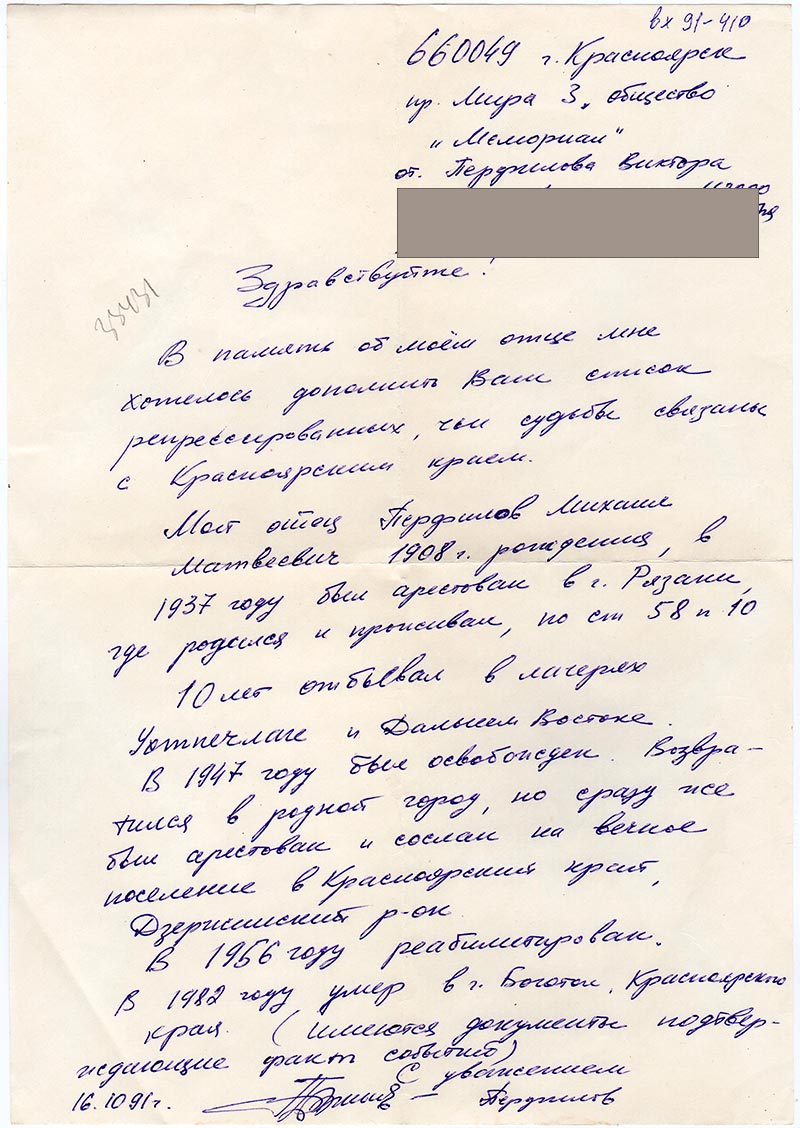 вх 91-410
660049 г. Красноярск
пр. Мира 3, общество
"Мемориал"
от. Перфилова Виктора
Здравствуйте!
33431
В память об моём отце мне
хотелось дополнить Ваш список
репрессированных, чьи судьбы связаны
с Красноярским краем.
Мой отец Перфилов Михаил
Матвеевич 1908 г. рождения, в
1937 году был арестован в г. Рязани,
где родился и проживал, по ст 58 п 10
10 лет отбывал в лагерях
Ухтпечлаге и Дальнем Востоке.
В 1947 году был освобожден. Возвра-
тился в родной город, но сразу же
был арестован и сослан на вечное
поселение в Красноярский край,
Дзержинский р-он
В 1956 году реабилитирован.
В 1982 году умер в г. Боготол, Красноярского
края. (имеются документы подтвер-
ждающие факты событий)
С уважением
16.10 91г. — Перфилов